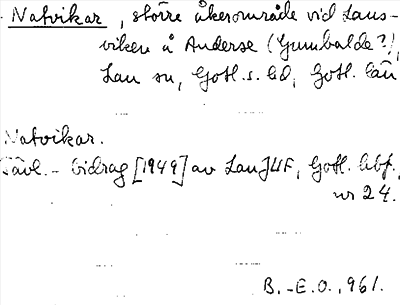 Natvikar, större åkerområde vid Laus-
viken å Anderse (Gumbalde?),
Lau sn, Gotl. s. hd, Gotl. län
Natvikar.
Tävl.-bidrag [1949] av Lau JUF, Gotl. hbf.
nr 24.
B.-E.O., 961.